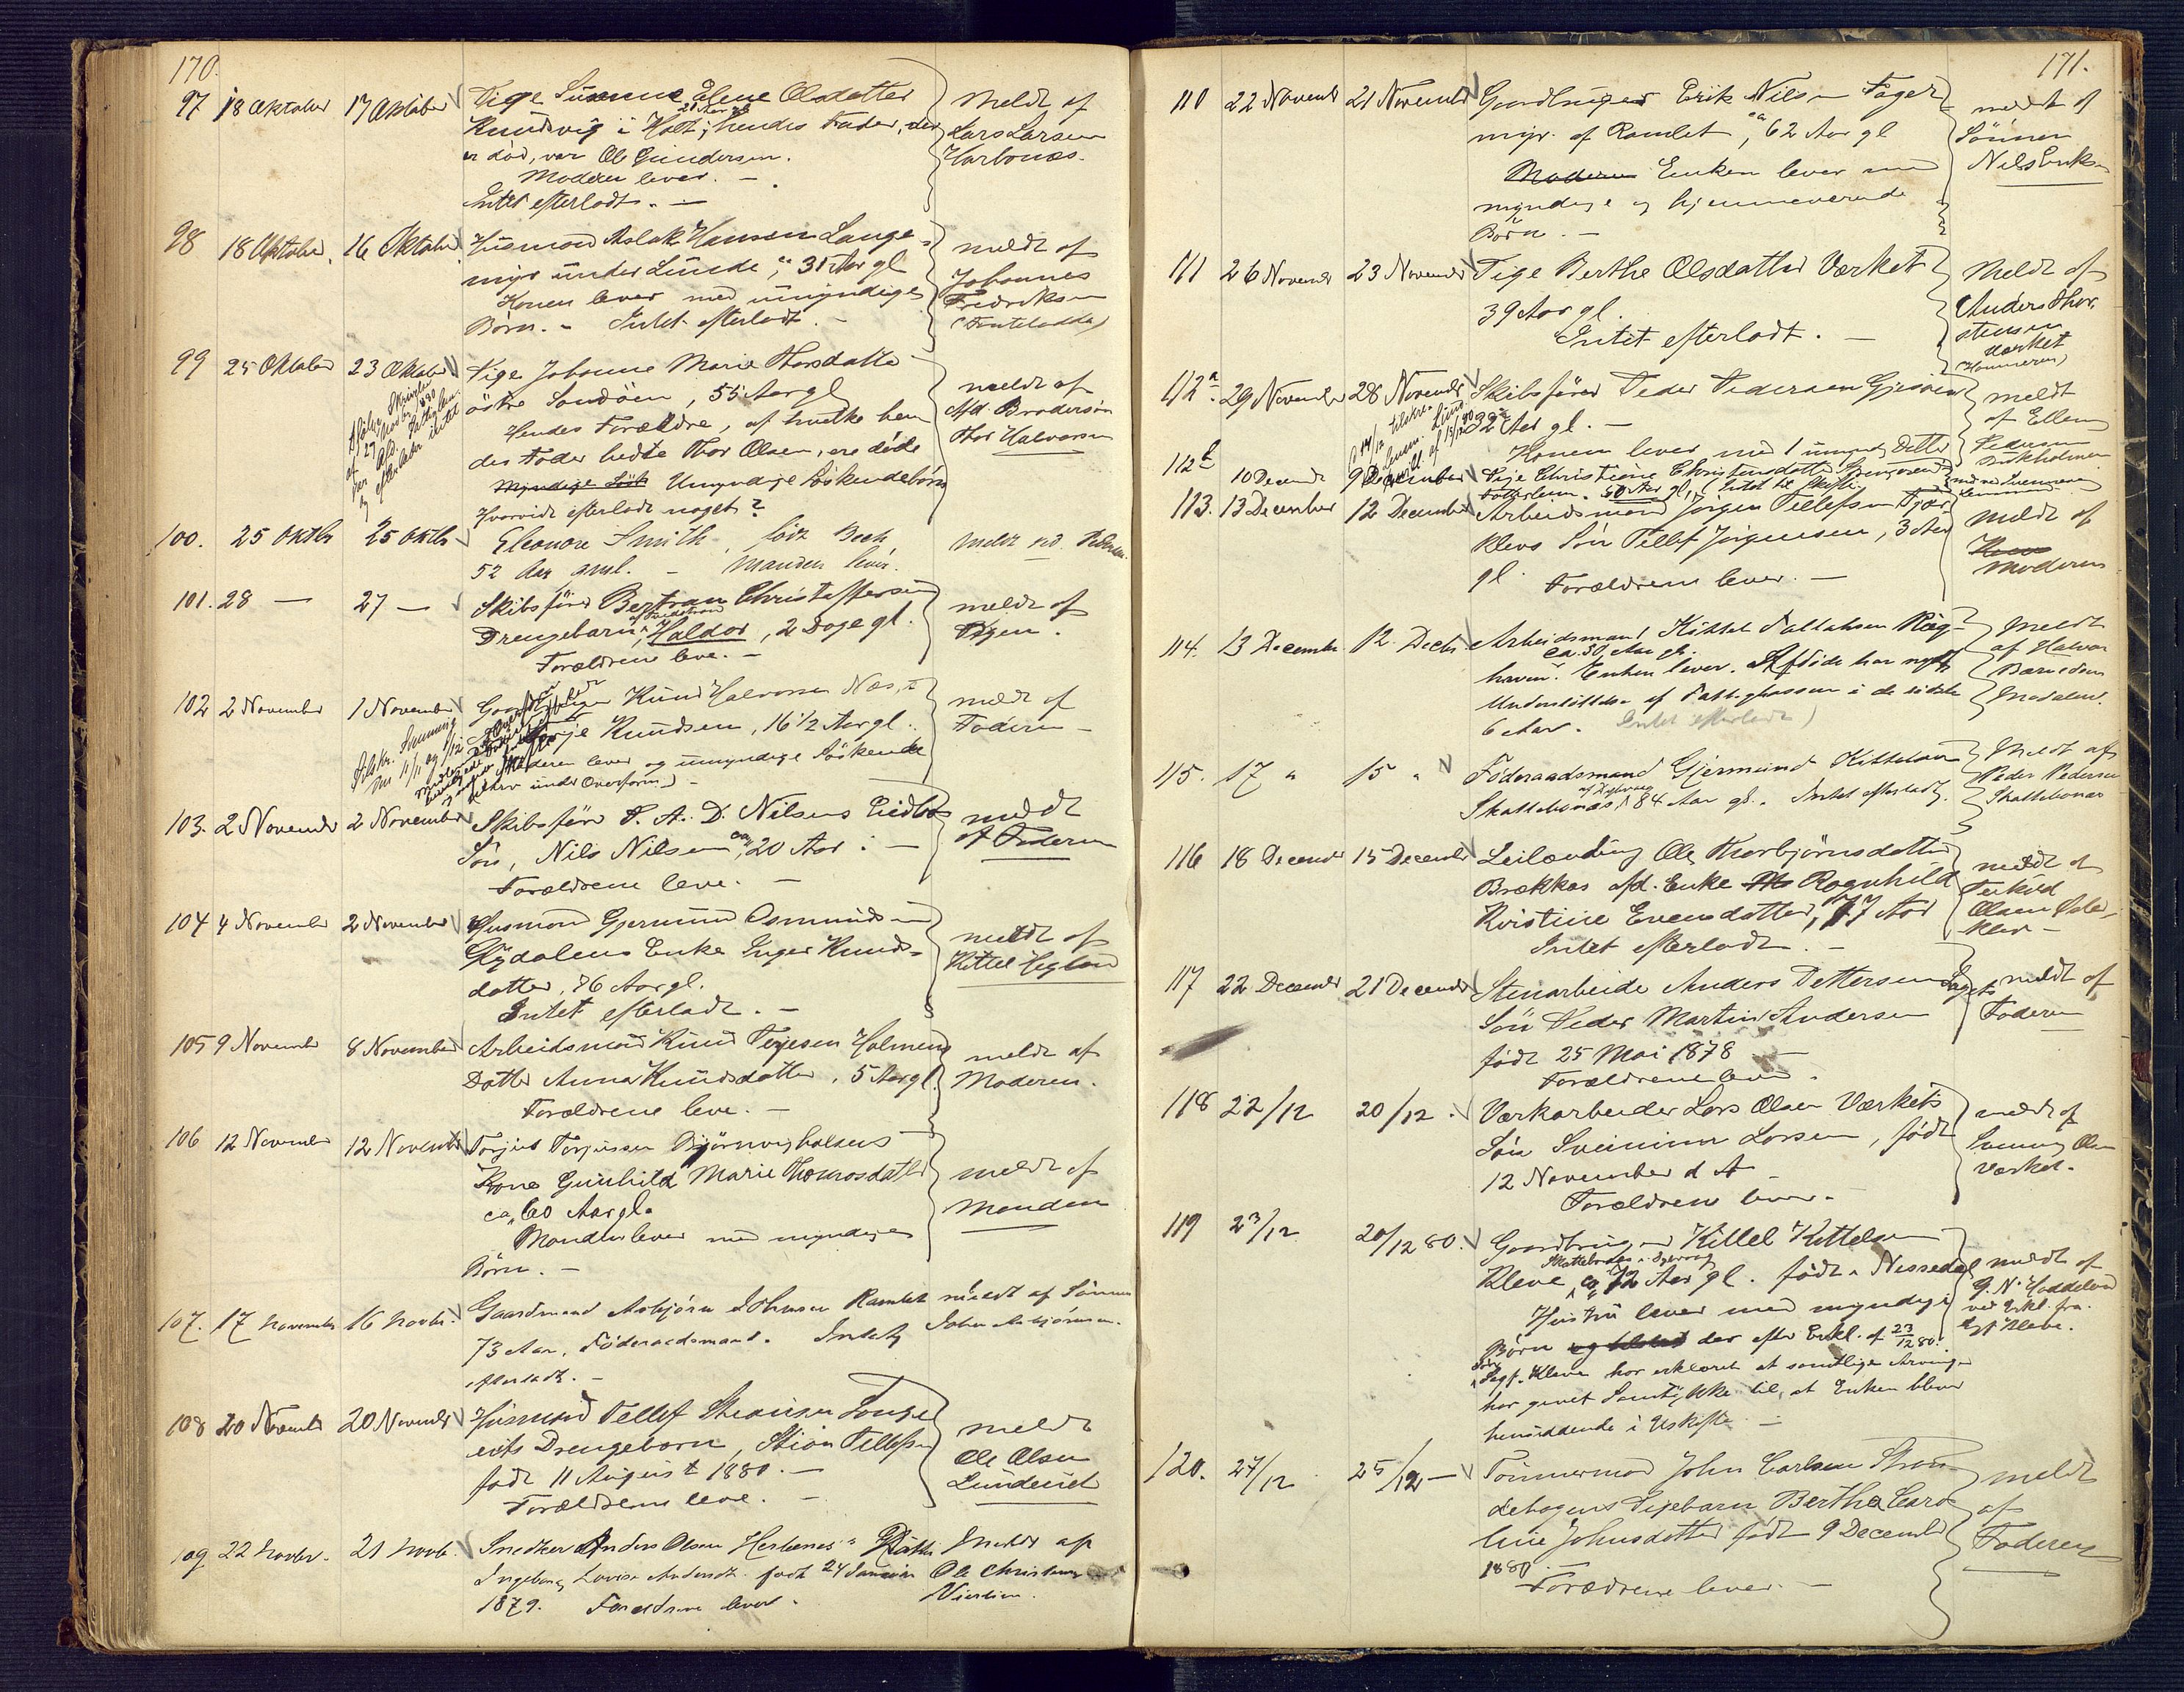 170.
97 18 Oktober 17 Oktober Pige Susanne Elene Olsdatter
21 Aar gl
Knudsvig i Holt; hendes Fader, der
er död, var Ole Gundersen.
Moderen lever. —
Intet efterladt. —
Meldt af
Lars Larsen
Harbonæs.
98 18 Oktober. 16 Oktober Husmand Aslak Hansen Lange-
myr under Lunde, ca 31 Aar gl
Konen lever med umyndige
Börn. — Intet efterladt. —
meldt af
Johannes
Fredriksen
99 25 Oktober 23 Oktober Pige Johanne Marie Thorsdatter
östre Sandöen, 55 Aar gl
Hendes Forældre, af hvilke hen
des Fader hedte Thor Olsen, ere döde
Myndige Umyndige Söskendebörn
Hvorvidt efterladt noget?
meldt af
Afd. Brodersön
Thor Halvorsen
100. 25 Oktbr 25 Oktbr Eleonore Smith, födt Beck
52 Aar gml. — Manden lever.
Meldt
101. 28 — 27 — Skibsförer Bertran Christoffersen
Drengebarn, Haldor, 2 Dage gl.
Forældrene leve. —
meldt af
102 2 November 1 November Knud Halvorsen Næs,
Terje Knudsen, 16 1/2 Aar gl.
Moderen lever og umyndige Söskende
under Overform.) —
meldt af
Faderen —
103. 2 November 2 November Skibsförer S. A. D. Nilsens Eidbo
Sön, Nils Nilsen, ca 20 Aar. —
Forældrene leve. —
meldt
af Faderen
104 4 November 2 November Husmand Gjermund Osmundsen
Glydalens Enke Inger Knuds-
datter, 76 Aar gl.
Intet efterladt. —
meldt af
Kittel Hegland
105 9 November 8 November Arbeidsmand Knud Terjesen Holmens
Datter Anna Knudsdatter, 5 Aar gl.
Forældrene leve. —
meldt af
Moderen.
106 12 November 12 November Torjus Torjussen Björnvigholsens
Kone Gunhild Marie Thomasdatter
ca. 60 Aar gl.
Manden lever med myndige
Börn. —
meldt af
Manden
107. 17 November 16 Novbr. Gaardmand Asbjörn Johnsen Ramlet
73 Aar, Föderaadsmand. Intet
efterladt. —
meldt af Sönnen
John Asbjörnsen.
108 20 Novembr 20 Novembr Husmand Tellef Stiansen Songe
eiets Drengebarn, Stian Tellefsen
födt 11 August 1880. —
Forældrene leve. —
meldt
Ole Olsen
Lundeeiet
109 22 Novbr. 21 Novb. Snedker Anders Olsen Herbenes's Datter
Ingeborg Lovise Andersdt. födt 24 Januar
1879. Forældrene lever.
Meldt af
Ole Christensen
171.
110 22 Novembr 21 Novembr Gaardbruger Erik Nilsen Fager
myr. af Ramlet, ca 62 Aar gl
Moderen Enken lever med
myndige og hjemmeværende
Börn. —
meldt af
Sönnen
Nils Eriksen
111 26 Novembr 23 Novembr Pige Berthe Olsdatter Værket
39 Aar gl.
Intet efterladt. —
Meldt af
Anders Thor-
stensen
Værket
112a 29 November 28 Novembr Skibsförer Peder Pedersen
32 Aar gl. —
Konen lever med 1 umynd. Datter
meldt
af Ellen
Pedersen
112b 10 Decembr 9 December Pige Christiane Christensdatter
60 Aar gl., Intet til Skifte.
113. 13 December 12 December Arbeidsmand Jörgen Tellefsen Fjær
klevs Sön Tellef Jörgensen, 3 Aar
gl. Forældrene lever. —
Meldt af
Moderen
114. 13 Decembr. 12. Decbr. Arbeidsmand Kittel Tallaksen
ca. 50 Aar gl.
Enken lever. Afdöde har nydt
Understöttelse af Fattigkassen i de sidste
6 Aar. Intet efterladt)
Meldt
af Halvor
115. 17 " 15 " Föderaadsmand Gjermund Kittelsen
Skattebonæs, 84 Aar gl. Intet efterladt.
Meldt af
Peder Pedersen
Skattebonæs
116 18 Decembr 15 Decembr Leilænding Ole Thorbjörnsdatter
Brækkas afd. Enke Ragnhild
Kristine Evensdatter, 77 Aar
Intet efterladt. —
meldt af
Terkild
Olsen
117 22 Decembr 21 Decembr Stenarbeider Anders Pettersen
Sön Peder Martin Andersen
födt 25 Mai 1878 —
Forældrene lever.
meldt af
Faderen
118 22/12 20/12. Værkarbeider Lars Olsen Værkets
Sön Sveinung Larsen, födt
12 November d A —
Forældrene lever. —
meldt af
Sveinung Olsen
Værket.
119 23/12 20/12 80. Gaardbruger Kittel Kittelsen
Kleve, ca 72 Aar gl. födt i Nissedal
Hustru lever med myndige
Börn der efter Erkl. af 23/12 80.
Kleve har erklæret at samtlige Arvinger
har givet Samtykke til, at Enken bliver
hensiddende i Uskifte —
meldt af
G. N. Haddeland
ved Erkl. fra
Kleve.
120. 27/12 25/12 — Tömmermand John Carlsen Stran
dehagens Pigebarn Berthe Caro
line Johnsdatter födt 9 Decembr
1880.
Forældrene lever. —
meldt
af
Faderen